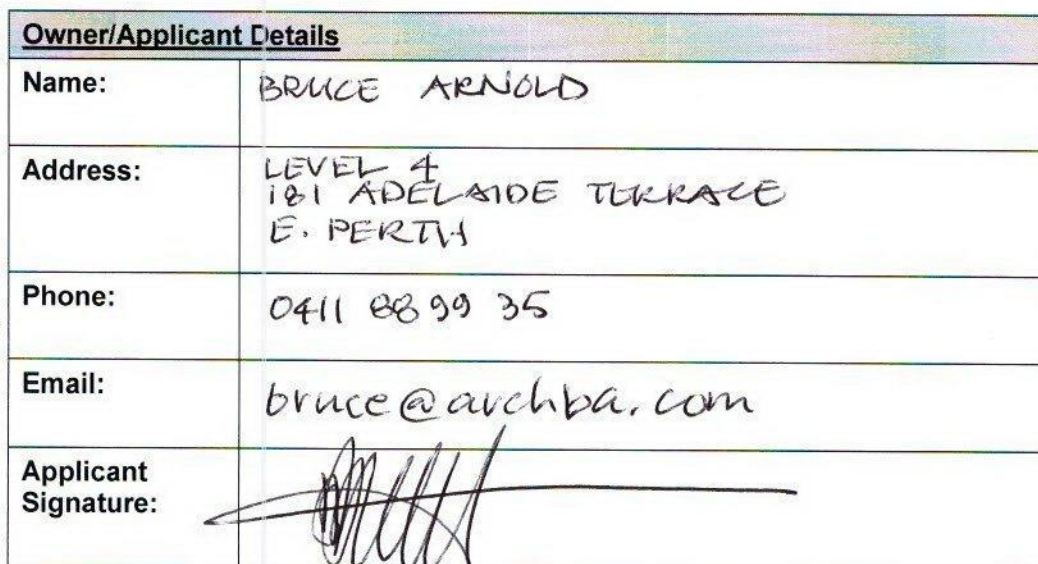 Owner/Applicant Details
Name: BRUCE ARNOLD
Address: LEVEL 4
181 ADELAIDE TERRACE
E. PERTH
Phone: 0411 88 99 35
Email: bruce@archba.com
Applicant
Signature: